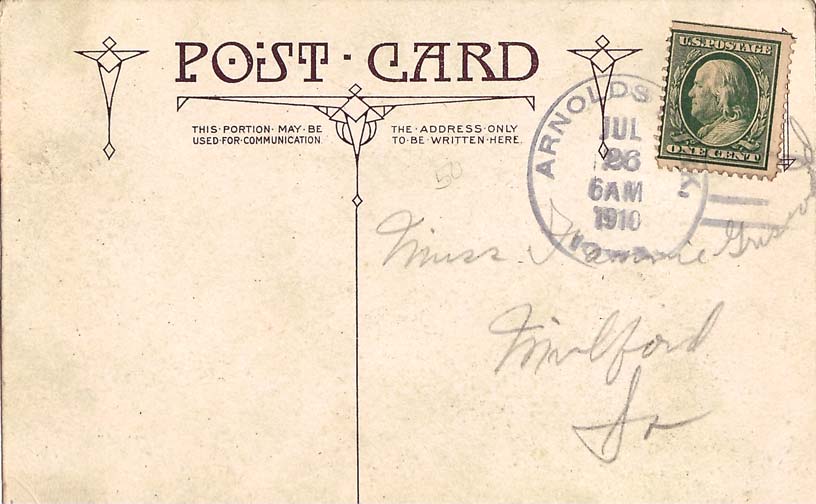 POST · CARD
THIS · PORTION · MAY · BE
USED · FOR · COMMUNICATION
THE · ADDRESS · ONLY
TO · BE · WRITTEN · HERE.
U.S. POSTAGE
ONE CENT
ARNOLDS
JUL
26
6AM
1910
50
Miss
Milford